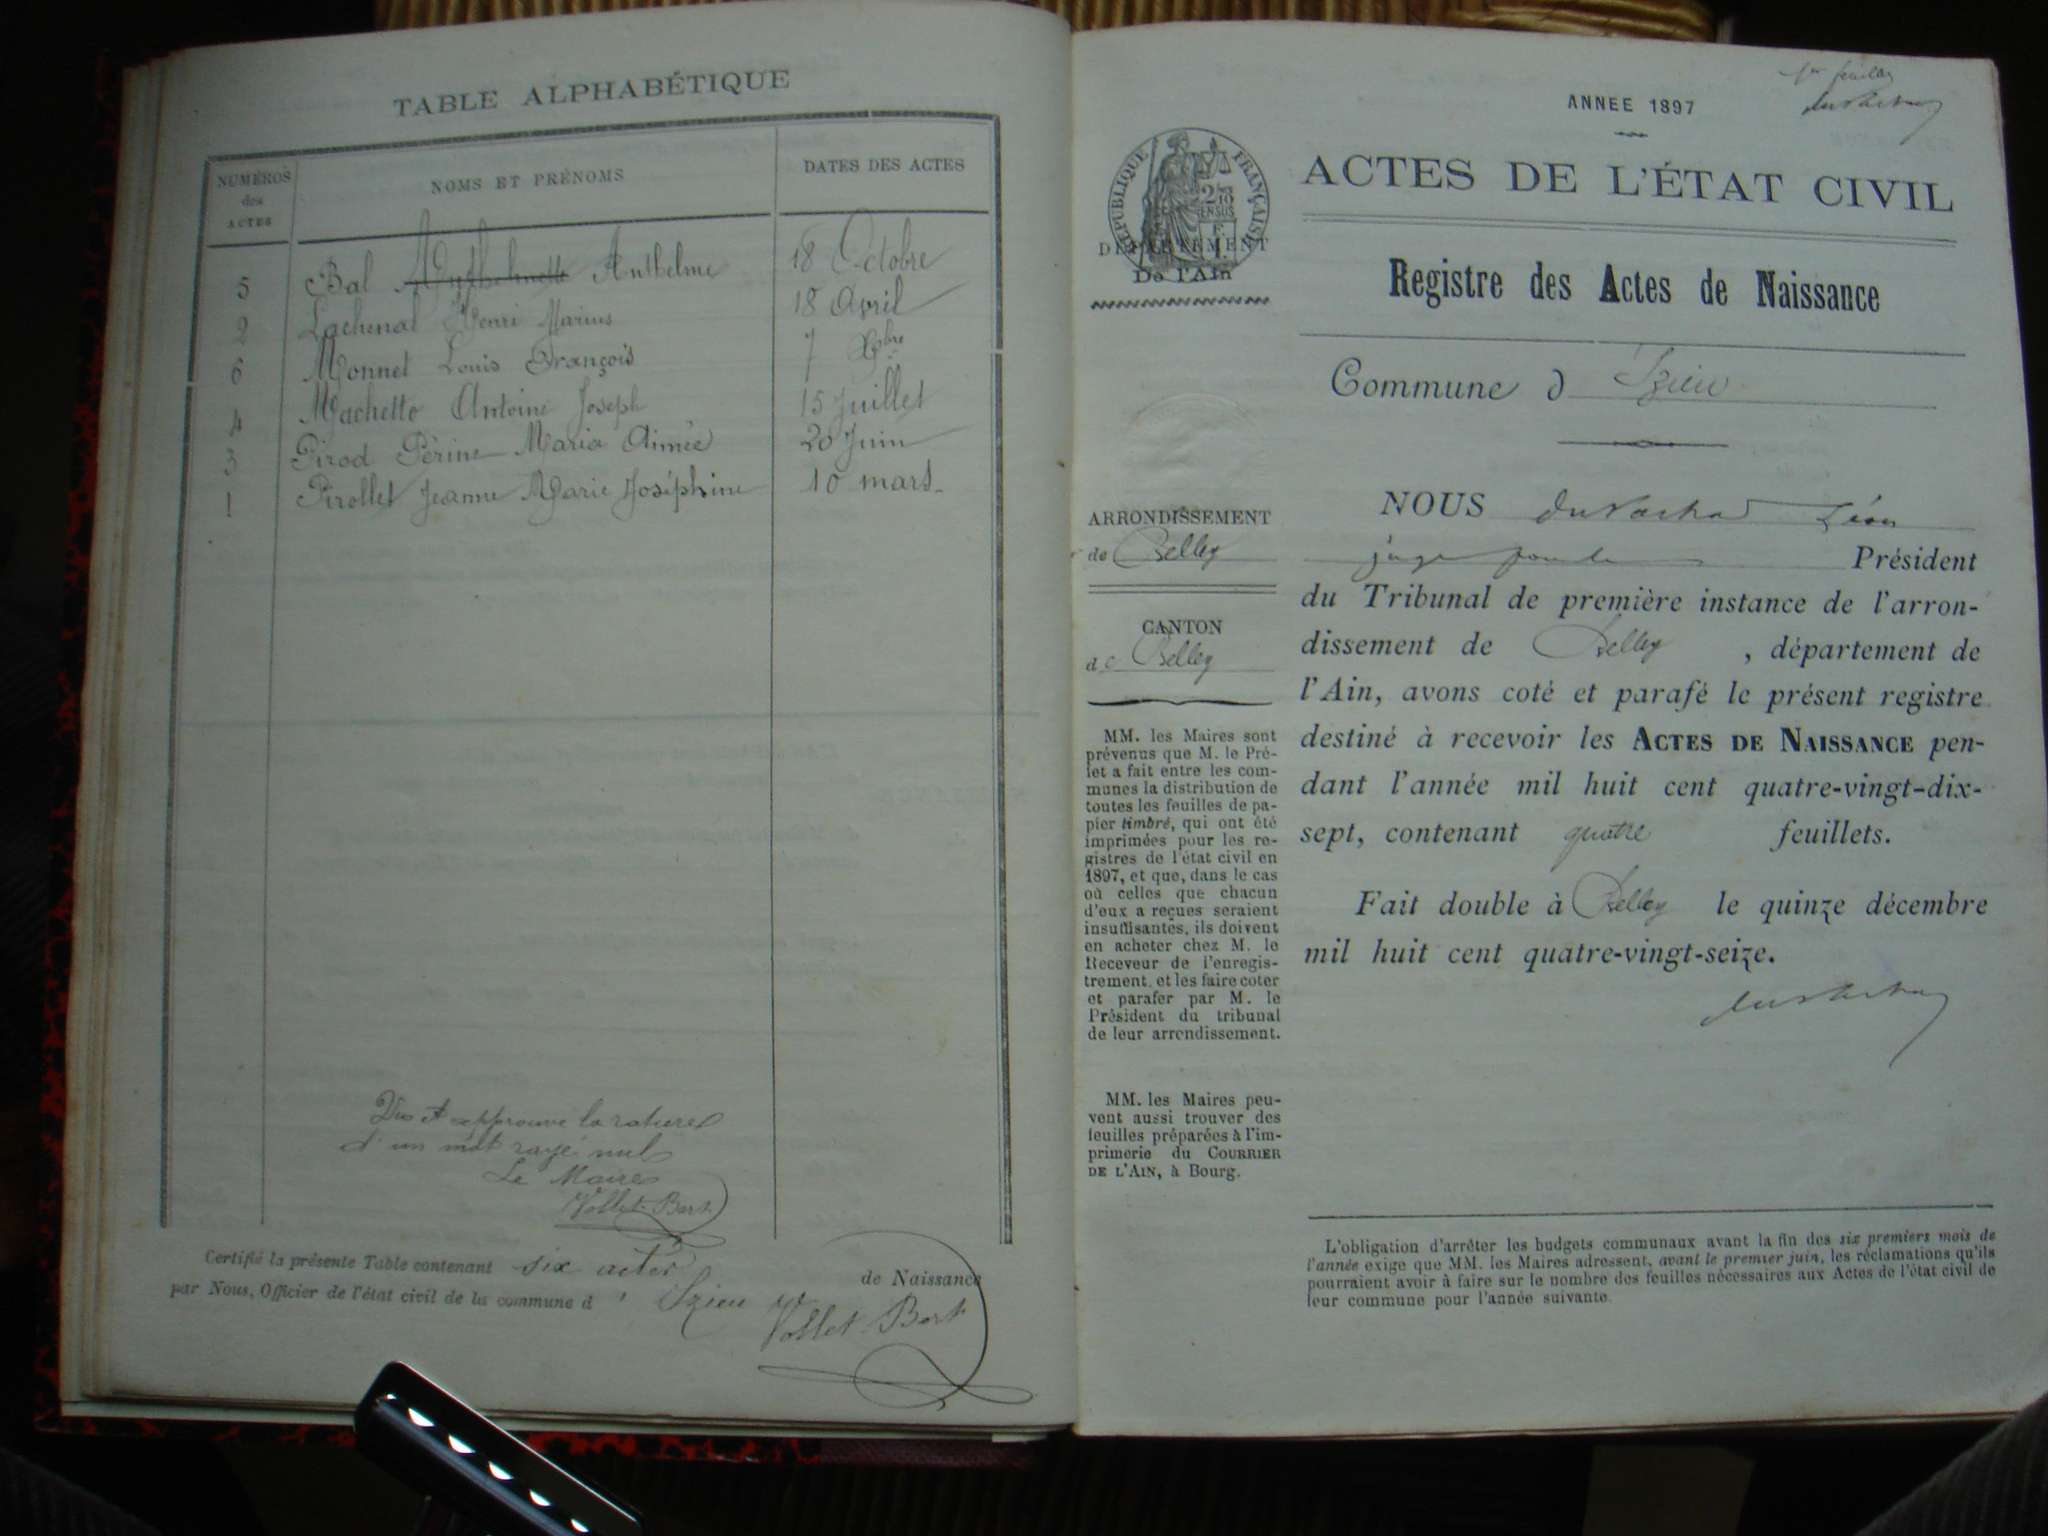 TABLE ALPHABÉTIQUE
NUMÉROS des ACTES NOMS ET PRÉNOMS DATES DES ACTES
5 Bal Anthelme 18 Octobre
2 Lachenal Henri Marius 18 Avril
6 Monnet Louis François 7 Xbre
4 Machetto Antoine Joseph 15 Juillet
3 Pirod Périne Maria Aimée 20 Juin
1 Pirollet Jeanne Marie Joséphine 10 mars
Vu et approuvé la rature
d'un mot rayé nul
Le Maire
Vollet-Bert
Certifié la présente Table contenant six actes de Naissance
par Nous, Officier de l'état civil de la commune d' Izieu
Vollet-Bert
1er feuillet
ANNEE 1897
RÉPUBLIQUE FRANÇAISE
DÉPARTEMENT
De l'Ain
ACTES DE L'ÉTAT CIVIL
Registre des Actes de Naissance
Commune d Izieu
ARRONDISSEMENT
de Belley
CANTON
de Belley
MM. les Maires sont
prévenus que M. le Pré-
fet a fait entre les com-
munes la distribution de
toutes les feuilles de pa-
pier timbré, qui ont été
imprimées pour les re-
gistres de l'état civil en
1897, et que, dans le cas
où celles que chacun
d'eux a reçues seraient
insuffisantes, ils doivent
en acheter chez M. le
Receveur de l'enregis-
trement, et les faire coter
et parafer par M. le
Président du tribunal
de leur arrondissement.
MM. les Maires peu-
vent aussi trouver des
feuilles préparées à l'im-
primerie du COURRIER
DE L'AIN, à Bourg.
NOUS Léon
juge Président
du Tribunal de première instance de l'arron-
dissement de Belley, département de
l'Ain, avons coté et parafé le présent registre
destiné à recevoir les ACTES DE NAISSANCE pen-
dant l'année mil huit cent quatre-vingt-dix-
sept, contenant quatre feuillets.
Fait double à Belley le quinze décembre
mil huit cent quatre-vingt-seize.
L'obligation d'arrêter les budgets communaux avant la fin des six premiers mois de
l'année exige que MM. les Maires adressent, avant le premier juin, les réclamations qu'ils
pourraient avoir à faire sur le nombre des feuilles nécessaires aux Actes de l'état civil de
leur commune pour l'année suivante.